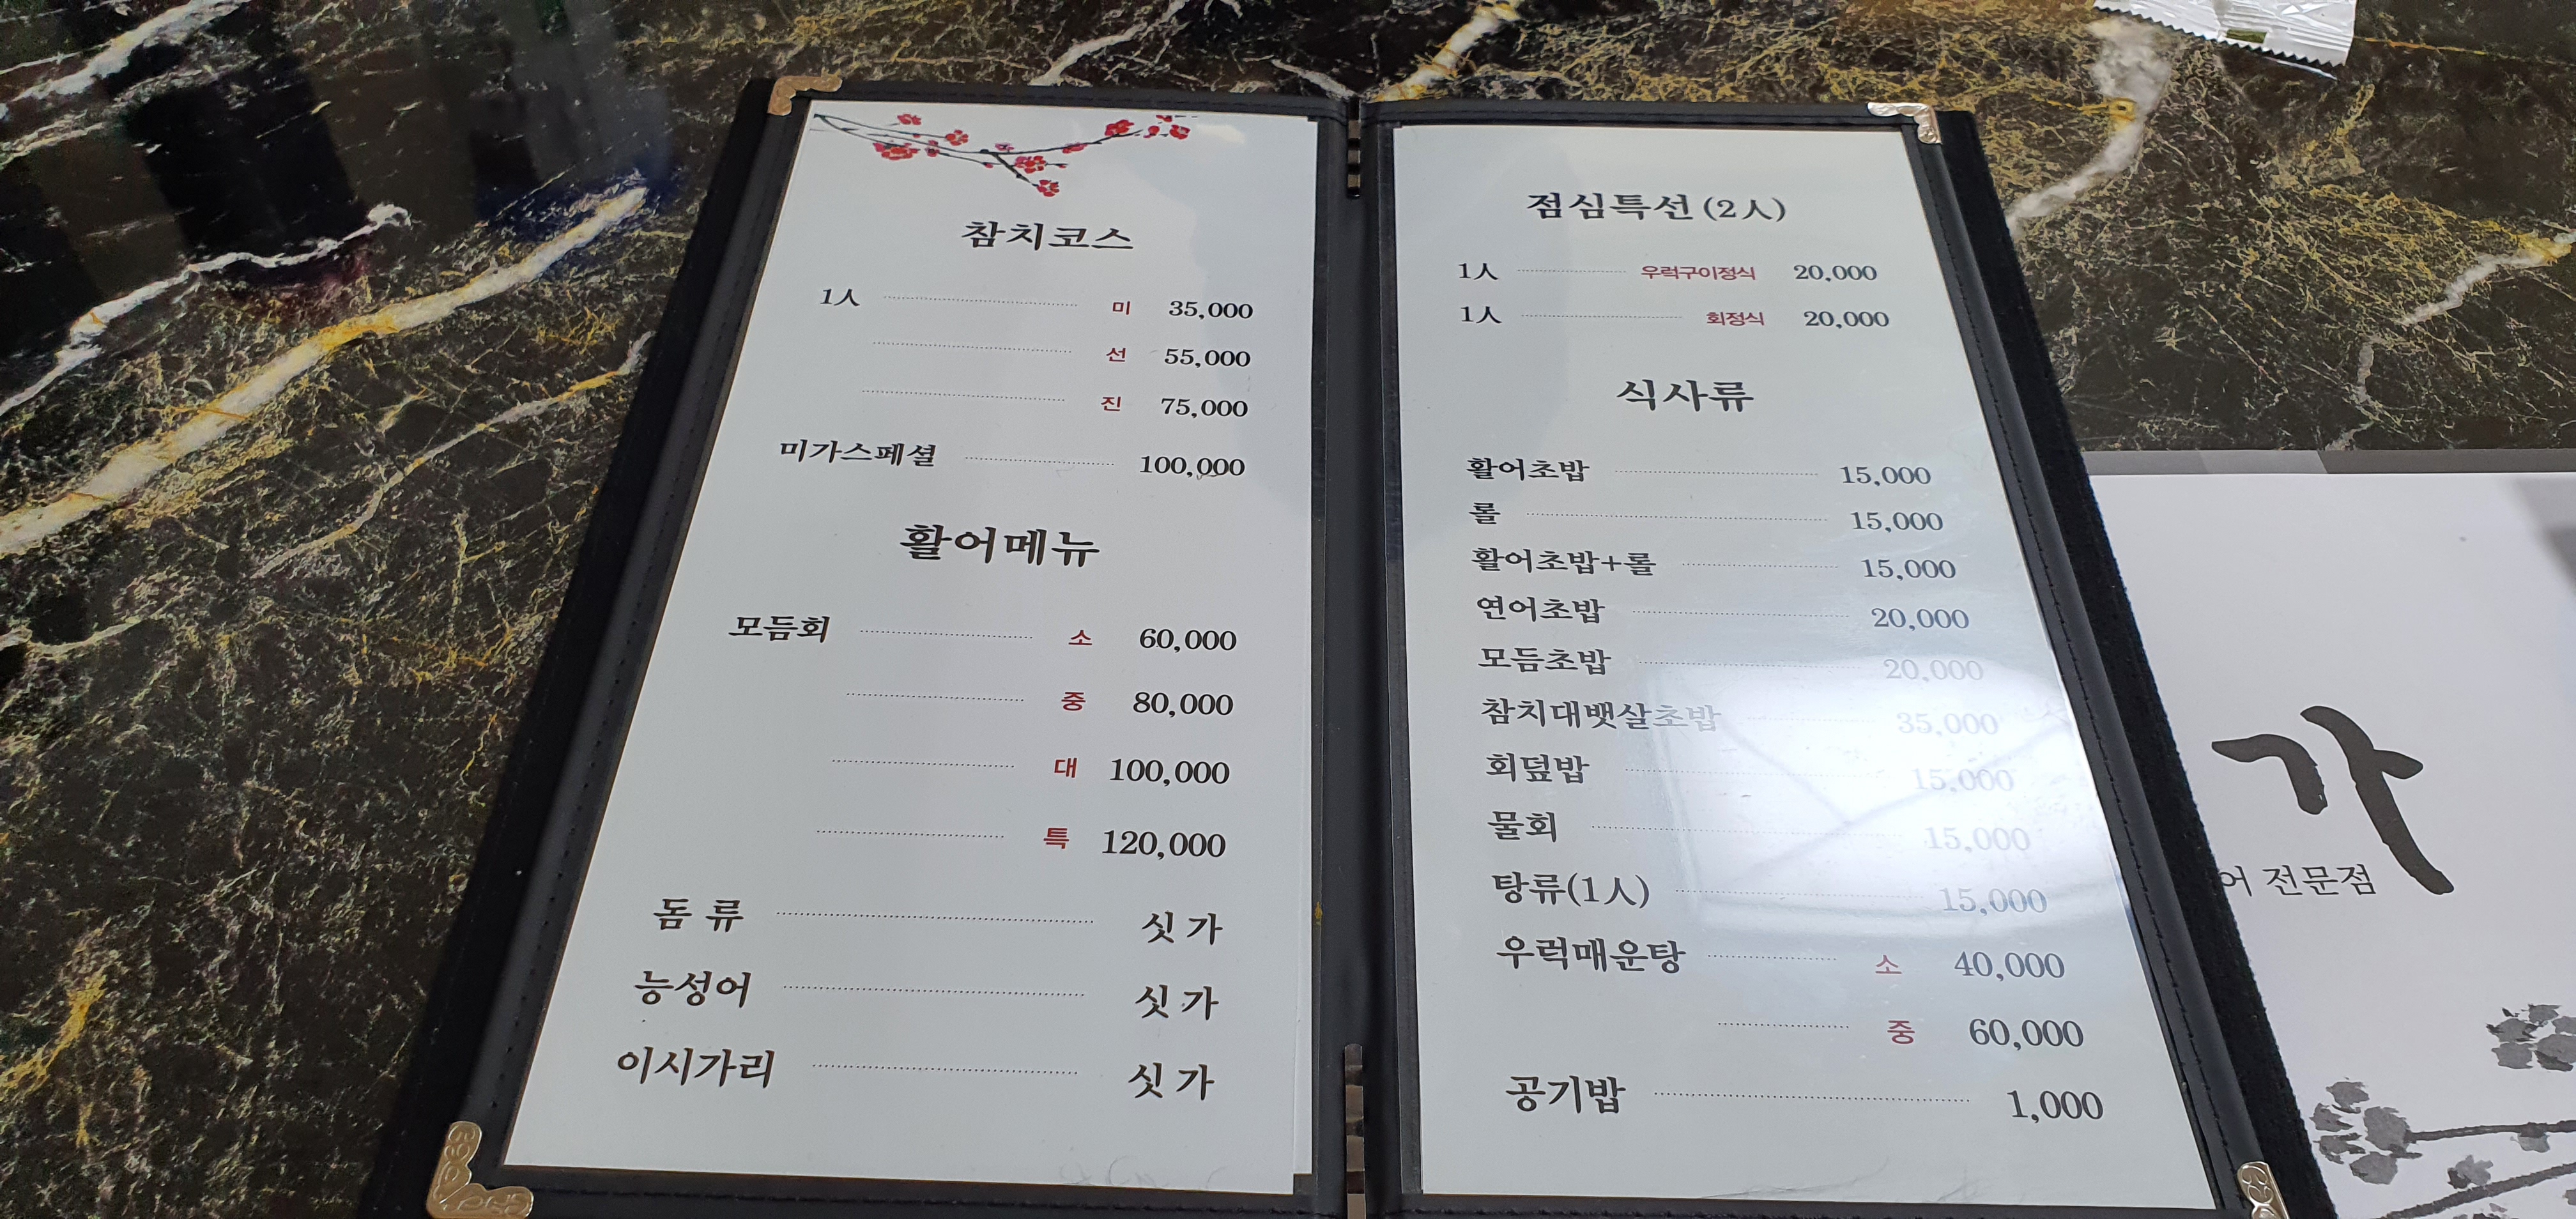 참치코스
1人 미 35,000
선 55,000
진 75,000
미가스페셜 100,000
활어메뉴
모듬회 소 60,000
중 80,000
대 100,000
특 120,000
돔 류 싯 가
능성어 싯 가
이시가리 싯 가
점심특선 (2人)
1人 우럭구이정식 20,000
1人 회정식 20,000
식사류
활어초밥 15,000
롤 15,000
활어초밥+롤 15,000
연어초밥 20,000
모듬초밥 20,000
참치대뱃살초밥 35,000
회덮밥 15,000
물회 15,000
탕류(1人) 15,000
우럭매운탕 소 40,000
중 60,000
공기밥 1,000
가
어 전문점